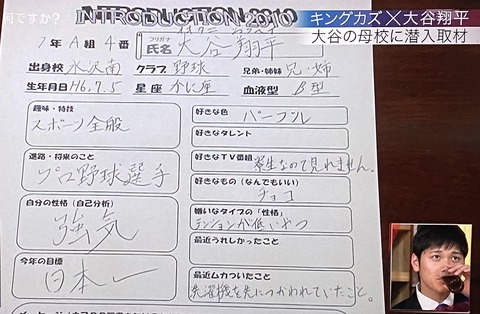 何ですか？
キングカズ×大谷翔平
大谷の母校に潜入取材
INTRODUCTION 2010
1年A組4番
フリガナ
氏名 大谷 翔平
出身校 水沢南 クラブ 野球 兄弟・姉妹 兄・姉
生年月日 H6.7.5 星座 かに座 血液型 B型
趣味・特技
スポーツ全般
進路・将来のこと
プロ野球選手
自分の性格(自己分析)
強気
今年の目標
日本一
好きな色 パープル
好きなタレント
好きなTV番組 寮生なので見れません。
好きなもの(なんでもいい)
チョコ
嫌いなタイプの「性格」
テンションが低いやつ
最近うれしかったこと
最近ムカついたこと
洗濯機を先につかわれていたこと。